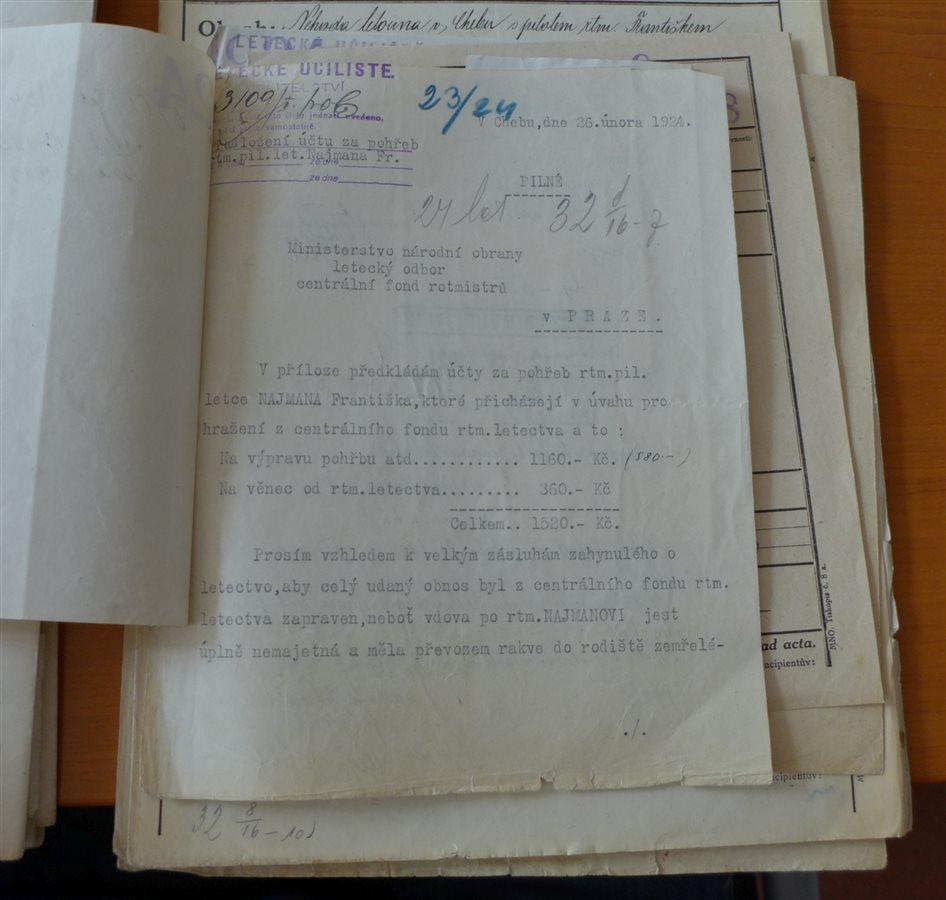 Nehoda letounu v Chebu s pilotem rtm. Františkem
LETECKÉ UČILIŠTĚ
LETECKÉ UČILIŠTĚ.
3109
23/24
V Chebu, dne 26.února 1924.
uvedeno.
samostatně.
účtu za pohřeb
rtm.pil.let.Najmana Fr.
ze dne
ze dne
PILNÉ
24 let 32 8/16-7
Ministerstvo národní obrany
letecký odbor
centrální fond rotmistrů
v PRAZE.
V příloze předkládám účty za pohřeb rtm.pil.
letce NAJMANA Františka,které přicházejí v úvahu pro
hražení z centrálního fondu rtm.letectva a to :
Na výpravu pohřbu atd............ 1160.- Kč. (580.-)
Na věnec od rtm.letectva......... 360.- Kč
Celkem.. 1520.- Kč.
Prosím vzhledem k velkým zásluhám zahynulého o
letectvo,aby celý udaný obnos byl z centrálního fondu rtm.
letectva zapraven,neboť vdova po rtm.NAJMANOVI jest
úplně nemajetná a měla převozem rakve do rodiště zemřelé-
./.
ad acta.
MNO. Tiskopis č. 8 a.
32 8/16-10)